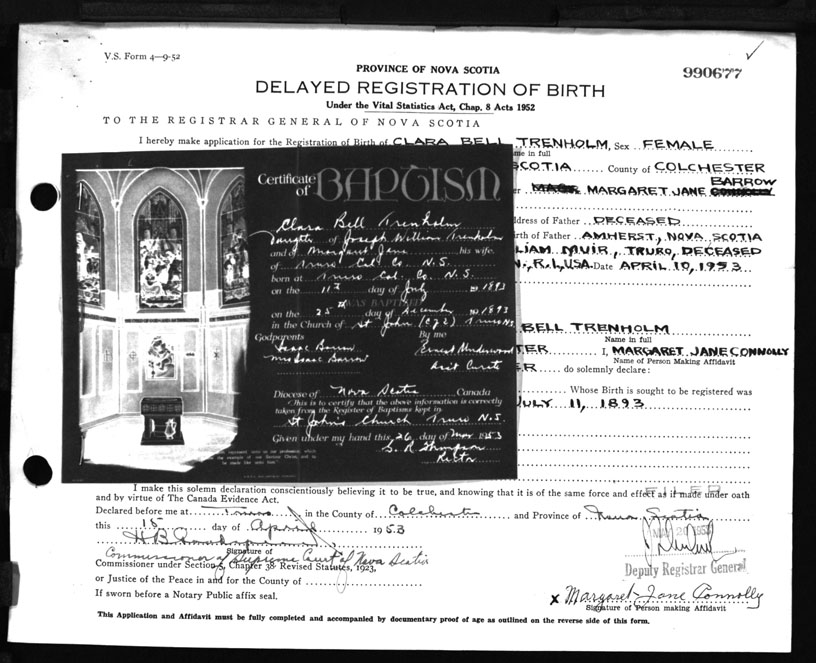 V.S. Form 4—9-52
990677
PROVINCE OF NOVA SCOTIA
DELAYED REGISTRATION OF BIRTH
Under the Vital Statistics Act, Chap. 8 Acts 1952
TO THE REGISTRAR GENERAL OF NOVA SCOTIA
I hereby make application for the Registration of Birth of CLARA BELL TRENHOLM, Sex FEMALE
me in full
SCOTIA County of COLCHESTER
MARGARET JANE CONNOLLY BARROW
ddress of Father DECEASED
irth of Father AMHERST, NOVA SCOTIA
LIAM MUIR, TRURO, DECEASED
R.I., USA. Date APRIL 10, 1953
BELL TRENHOLM
Name in full
TER I, MARGARET JANE CONNOLLY
Name of Person Making Affidavit
ER do solemnly declare:
Whose Birth is sought to be registered was
JULY 11, 1893
Certificate of BAPTISM
Clara Bell Trenholm
daughter of Joseph William Trenholm
and of Margaret Jane his wife.
of Truro Col. Co. N.S.
born at Truro Col. Co. N.S.
on the 11th day of July 1893
WAS BAPTIZED
on the 25 day of December 1893
in the Church of St John (C of E) Truro N.S.
Godparents By me
Isaac Barrow Ernest Underwood
Mrs Isaac Barrow Asst Curate
Diocese of Nova Scotia Canada
This is to certify that the above information is correctly
taken from the Register of Baptisms kept in
St John's Church Truro N.S.
Given under my hand this 26 day of Mar 1953
S. R. Thompson
Rector
I make this solemn declaration conscientiously believing it to be true, and knowing that it is of the same force and effect as if made under oath
and by virtue of The Canada Evidence Act.
FILED
Declared before me at Truro in the County of Colchester and Province of Nova Scotia
this 15 day of April 1953
MAY 26 1953
Signature of
Commissioner of Supreme Court of Nova Scotia
Commissioner under Section 5, Chapter 38 Revised Statutes, 1923,
Deputy Registrar General
or Justice of the Peace in and for the County of
If sworn before a Notary Public affix seal.
x Margaret Jane Connolly
Signature of Person making Affidavit
This Application and Affidavit must be fully completed and accompanied by documentary proof of age as outlined on the reverse side of this form.